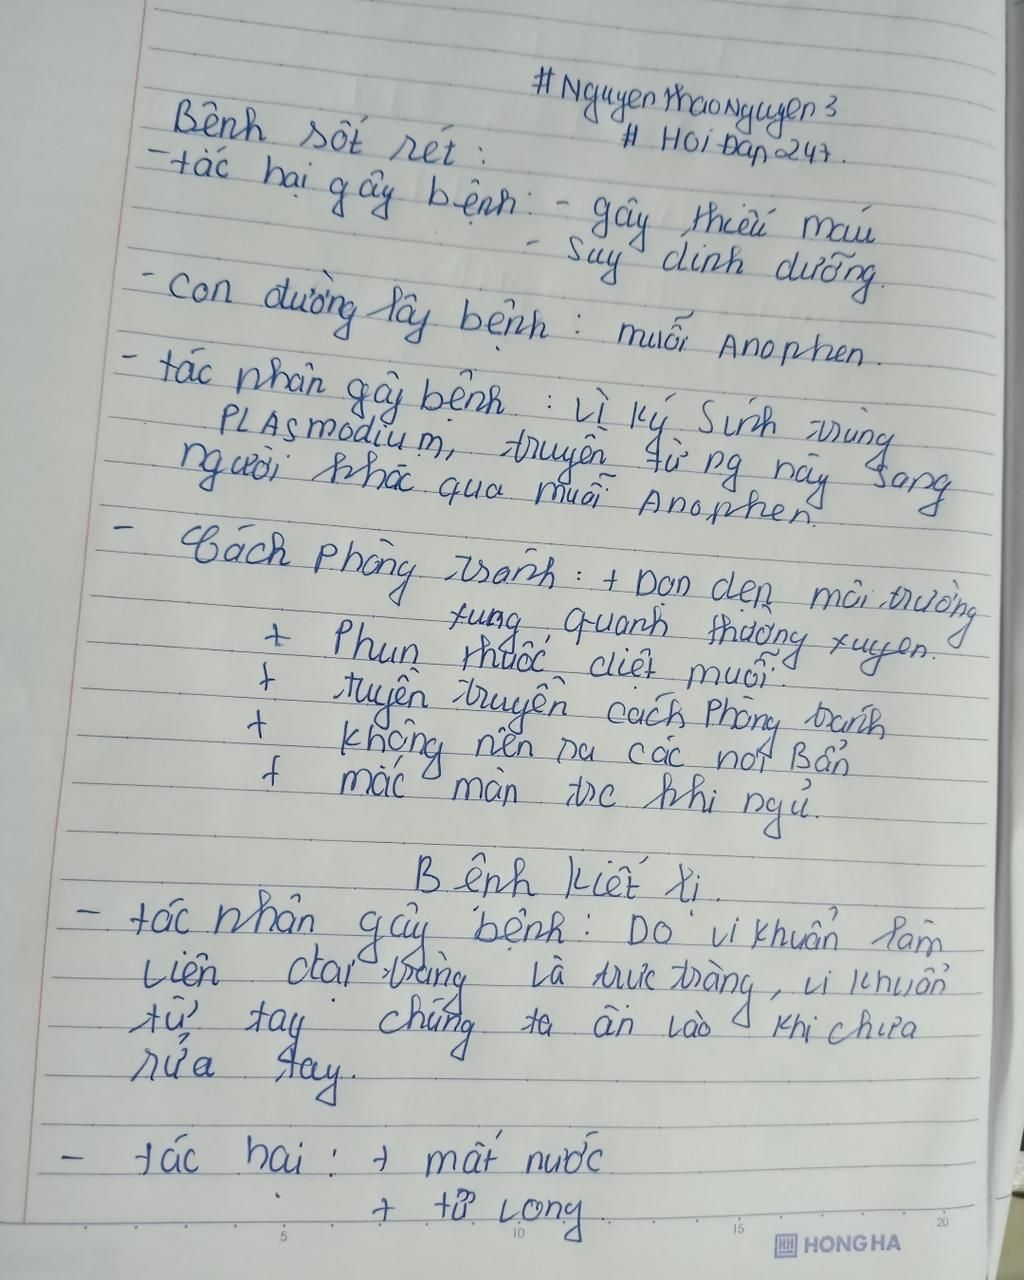 #NguyenThaoNguyen3
# HoiĐap247.
Bệnh sốt rét :
- tác hại gây bệnh : - gây thiếu máu
- Suy dinh dưỡng.
- Con đường lây bệnh : muỗi Anophen.
- tác nhân gây bệnh : vì ký Sinh trùng
PLAsmodium, truyền từ ng này sang
người khác qua muỗi Anophen.
- Cách phòng tránh : + Dọn dẹp môi trường
xung quanh thường xuyên.
+ Phun thuốc diệt muỗi.
+ tuyên truyền cách phòng tránh
+ không nên ra các nơi Bẩn
+ mắc màn trc khi ngủ.
Bệnh kiết lị.
- tác nhân gây bệnh : Do vi khuẩn làm
viên đại tràng và trực tràng, vi khuẩn
từ tay chúng ta ăn vào khi chưa
rửa tay.
- tác hại : + mất nước
+ tử vong
5
10
15
20
HH HONG HA